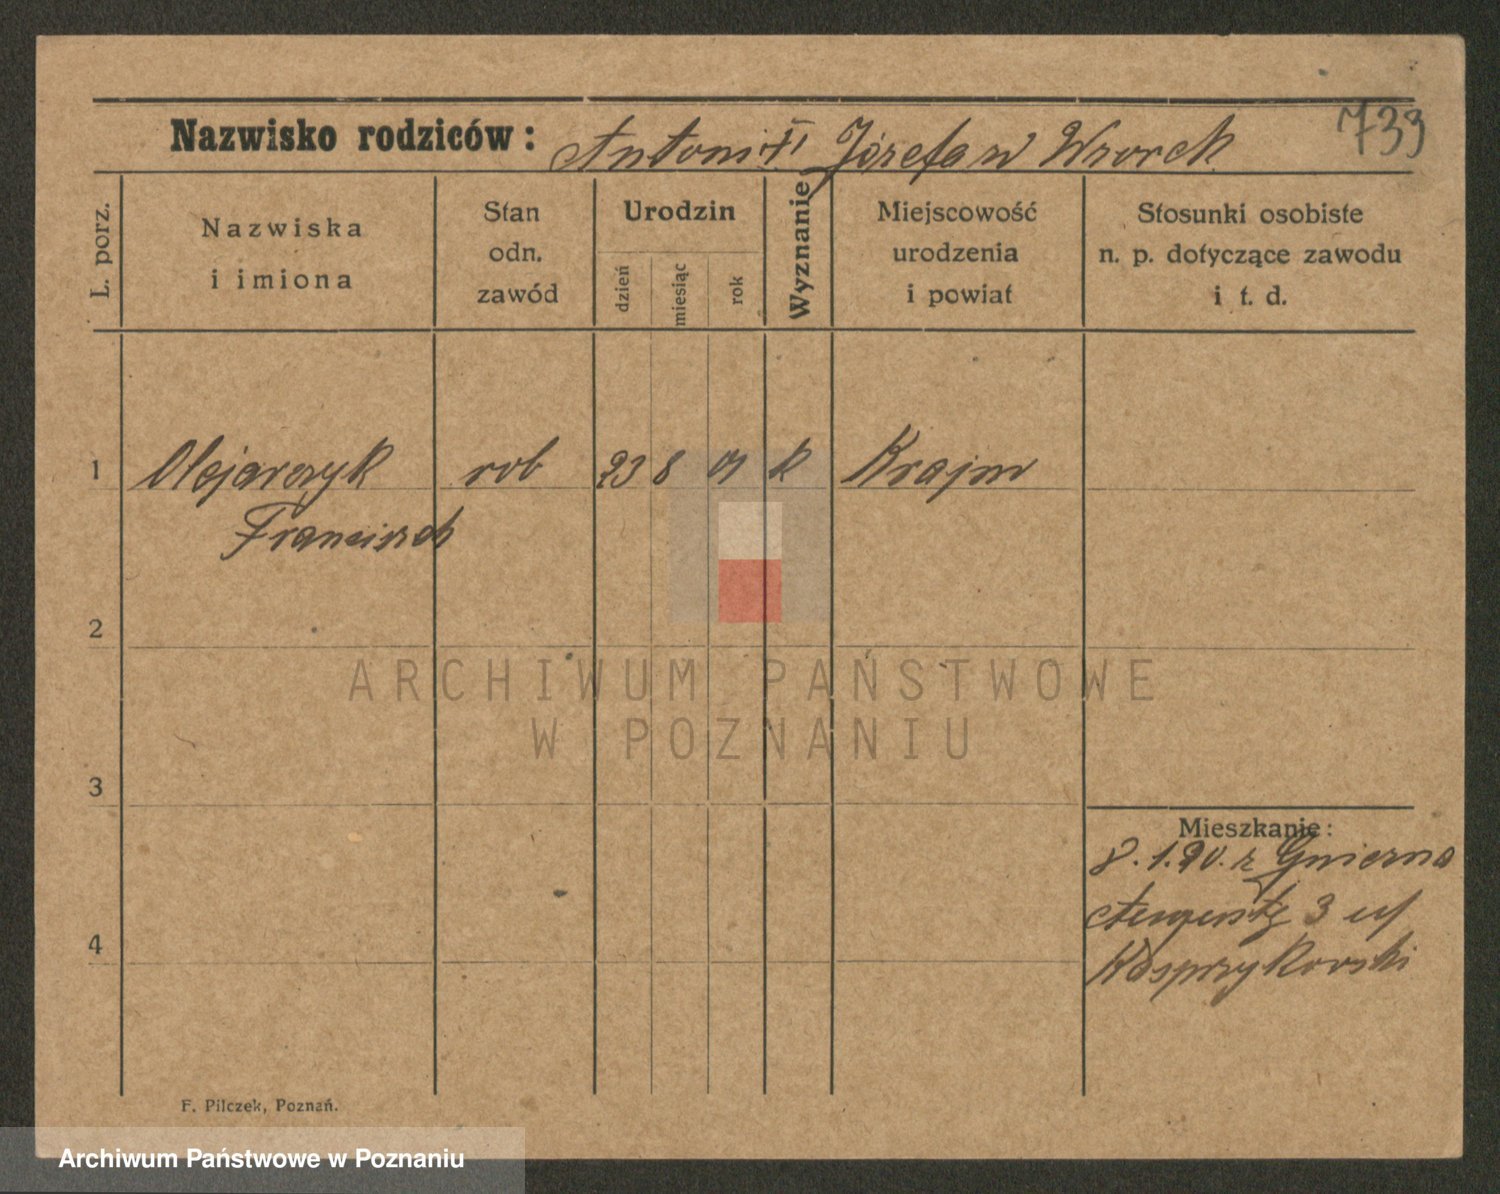 739
Nazwisko rodziców: Antoni Józefa
L. porz.
Nazwiska
i imiona
Stan
odn.
zawód
Urodzin
dzień
miesiąc
rok
Wyznanie
Miejscowość
urodzenia
i powiat
Stosunki osobiste
n. p. dotyczące zawodu
i t. d.
1 Olejarczyk rob 23 8 01 k Krajno
Franciszek
2
3
4
Mieszkanie:
8. 1. 20. z Gniezna
3
Kasprzykowski
F. Pilczek, Poznań.
ARCHIWUM PAŃSTWOWE
W POZNANIU
Archiwum Państwowe w Poznaniu